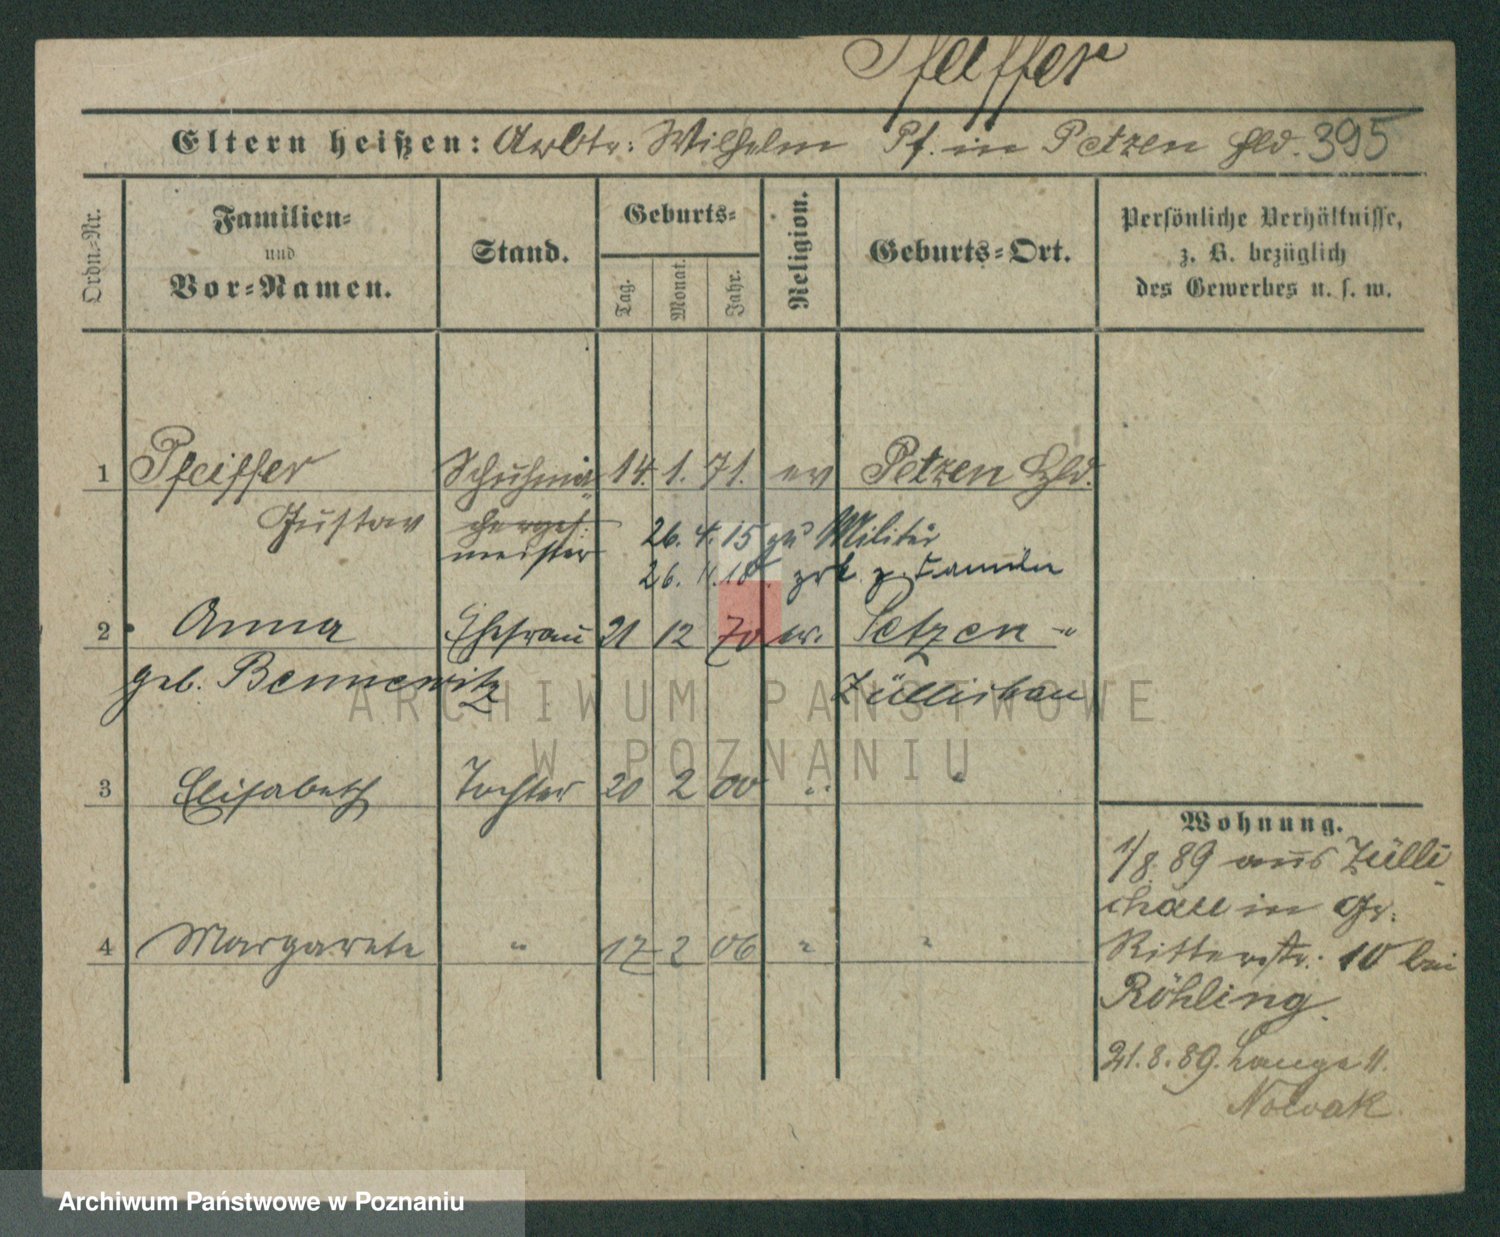 Pfeiffer
Eltern heißen: Arbtr: Wilhelm Pf. in Petzen Hld. 395
Ordn.-Nr.
Familien-
und
Vor-Namen.
Stand.
Geburts-
Tag.
Monat.
Jahr.
Religion.
Geburts-Ort.
Persönliche Verhältnisse,
z. B. bezüglich
des Gewerbes u. s. w.
1 Pfeiffer Schuhma 14. 1. 71. ev Petzen Hld.
Gustav cherges.
meister
26. 4. 15 zu Militär
26. 11. 18. zrk. z. Familie
2 Anna Ehefrau 21 12 70 ev.
geb. Bennewitz
3 Elisabeth Tochter 20 2 00 " "
4 Margarete " 17 2 06 " "
Wohnung.
1/8. 89 aus Zülli
chau in Gr.
Ritterstr. 10 bei
Röhling.
21. 8. 89. Lange 11.
Nowak.
ARCHIWUM PAŃSTWOWE
W POZNANIU
Archiwum Państwowe w Poznaniu